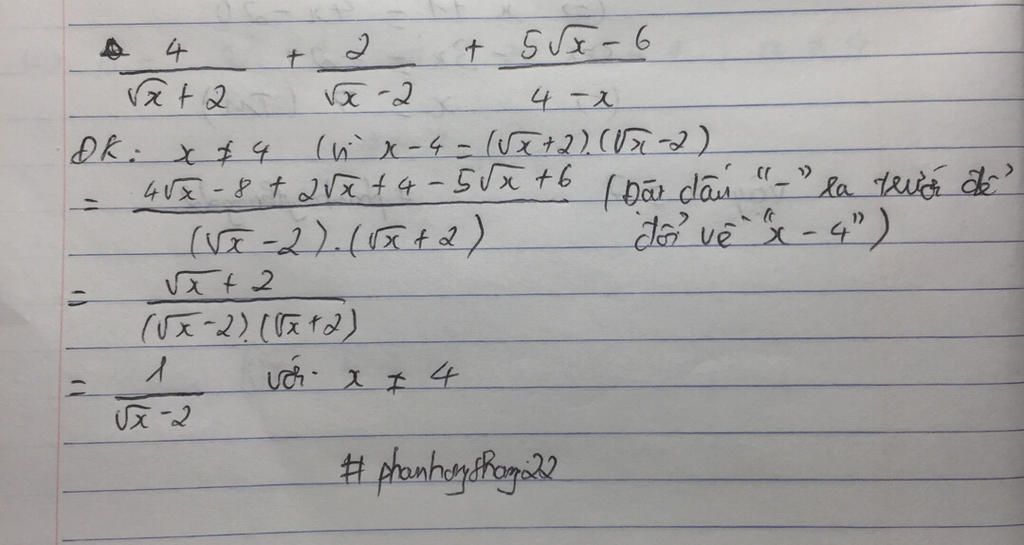 4/(√x + 2) + 2/(√x - 2) + (5√x - 6)/(4 - x)
ĐK: x ≠ 4 (vì x - 4 = (√x + 2).(√x - 2)
= (4√x - 8 + 2√x + 4 - 5√x + 6)/((√x - 2).(√x + 2)) (Đặt dấu "-" ra trước để
đổi về "x - 4")
= (√x + 2)/((√x - 2).(√x + 2))
= 1/(√x - 2) với x ≠ 4